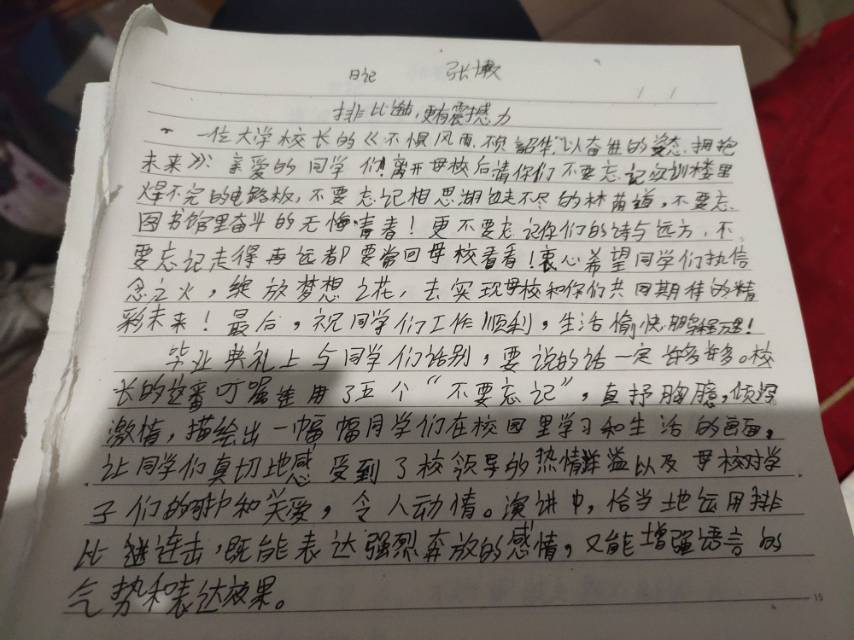 日记 张
排比 更有震撼力
一位大学校长的《不惧风雨、不负韶华,以奋进的姿态,拥抱
未来》:亲爱的同学们!离开母校后请你们不要忘记实训楼里
焊不完的电路板,不要忘记相思湖边走不尽的林荫道,不要忘
图书馆里奋斗的无悔青春!更不要忘记你们的诗与远方,不
要忘记走得再远都要常回母校看看!衷心希望同学们执信
念之火,绽放梦想之花,去实现母校和你们共同期待的精
彩未来!最后,祝同学们工作顺利,生活愉快,鹏程万里!
毕业典礼上与同学们话别,要说的话一定许多许多。校
长的这番叮嘱连用了五个“不要忘记”,直抒胸臆,倾泻
激情,描绘出一幅幅同学们在校园里学习和生活的画面,
让同学们真切地感受到了校领导的热情洋溢以及母校对学
子们的呵护和关爱,令人动情。演讲中,恰当地运用排
比 连击,既能表达强烈奔放的感情,又能增强语言的
气势和表达效果。
15